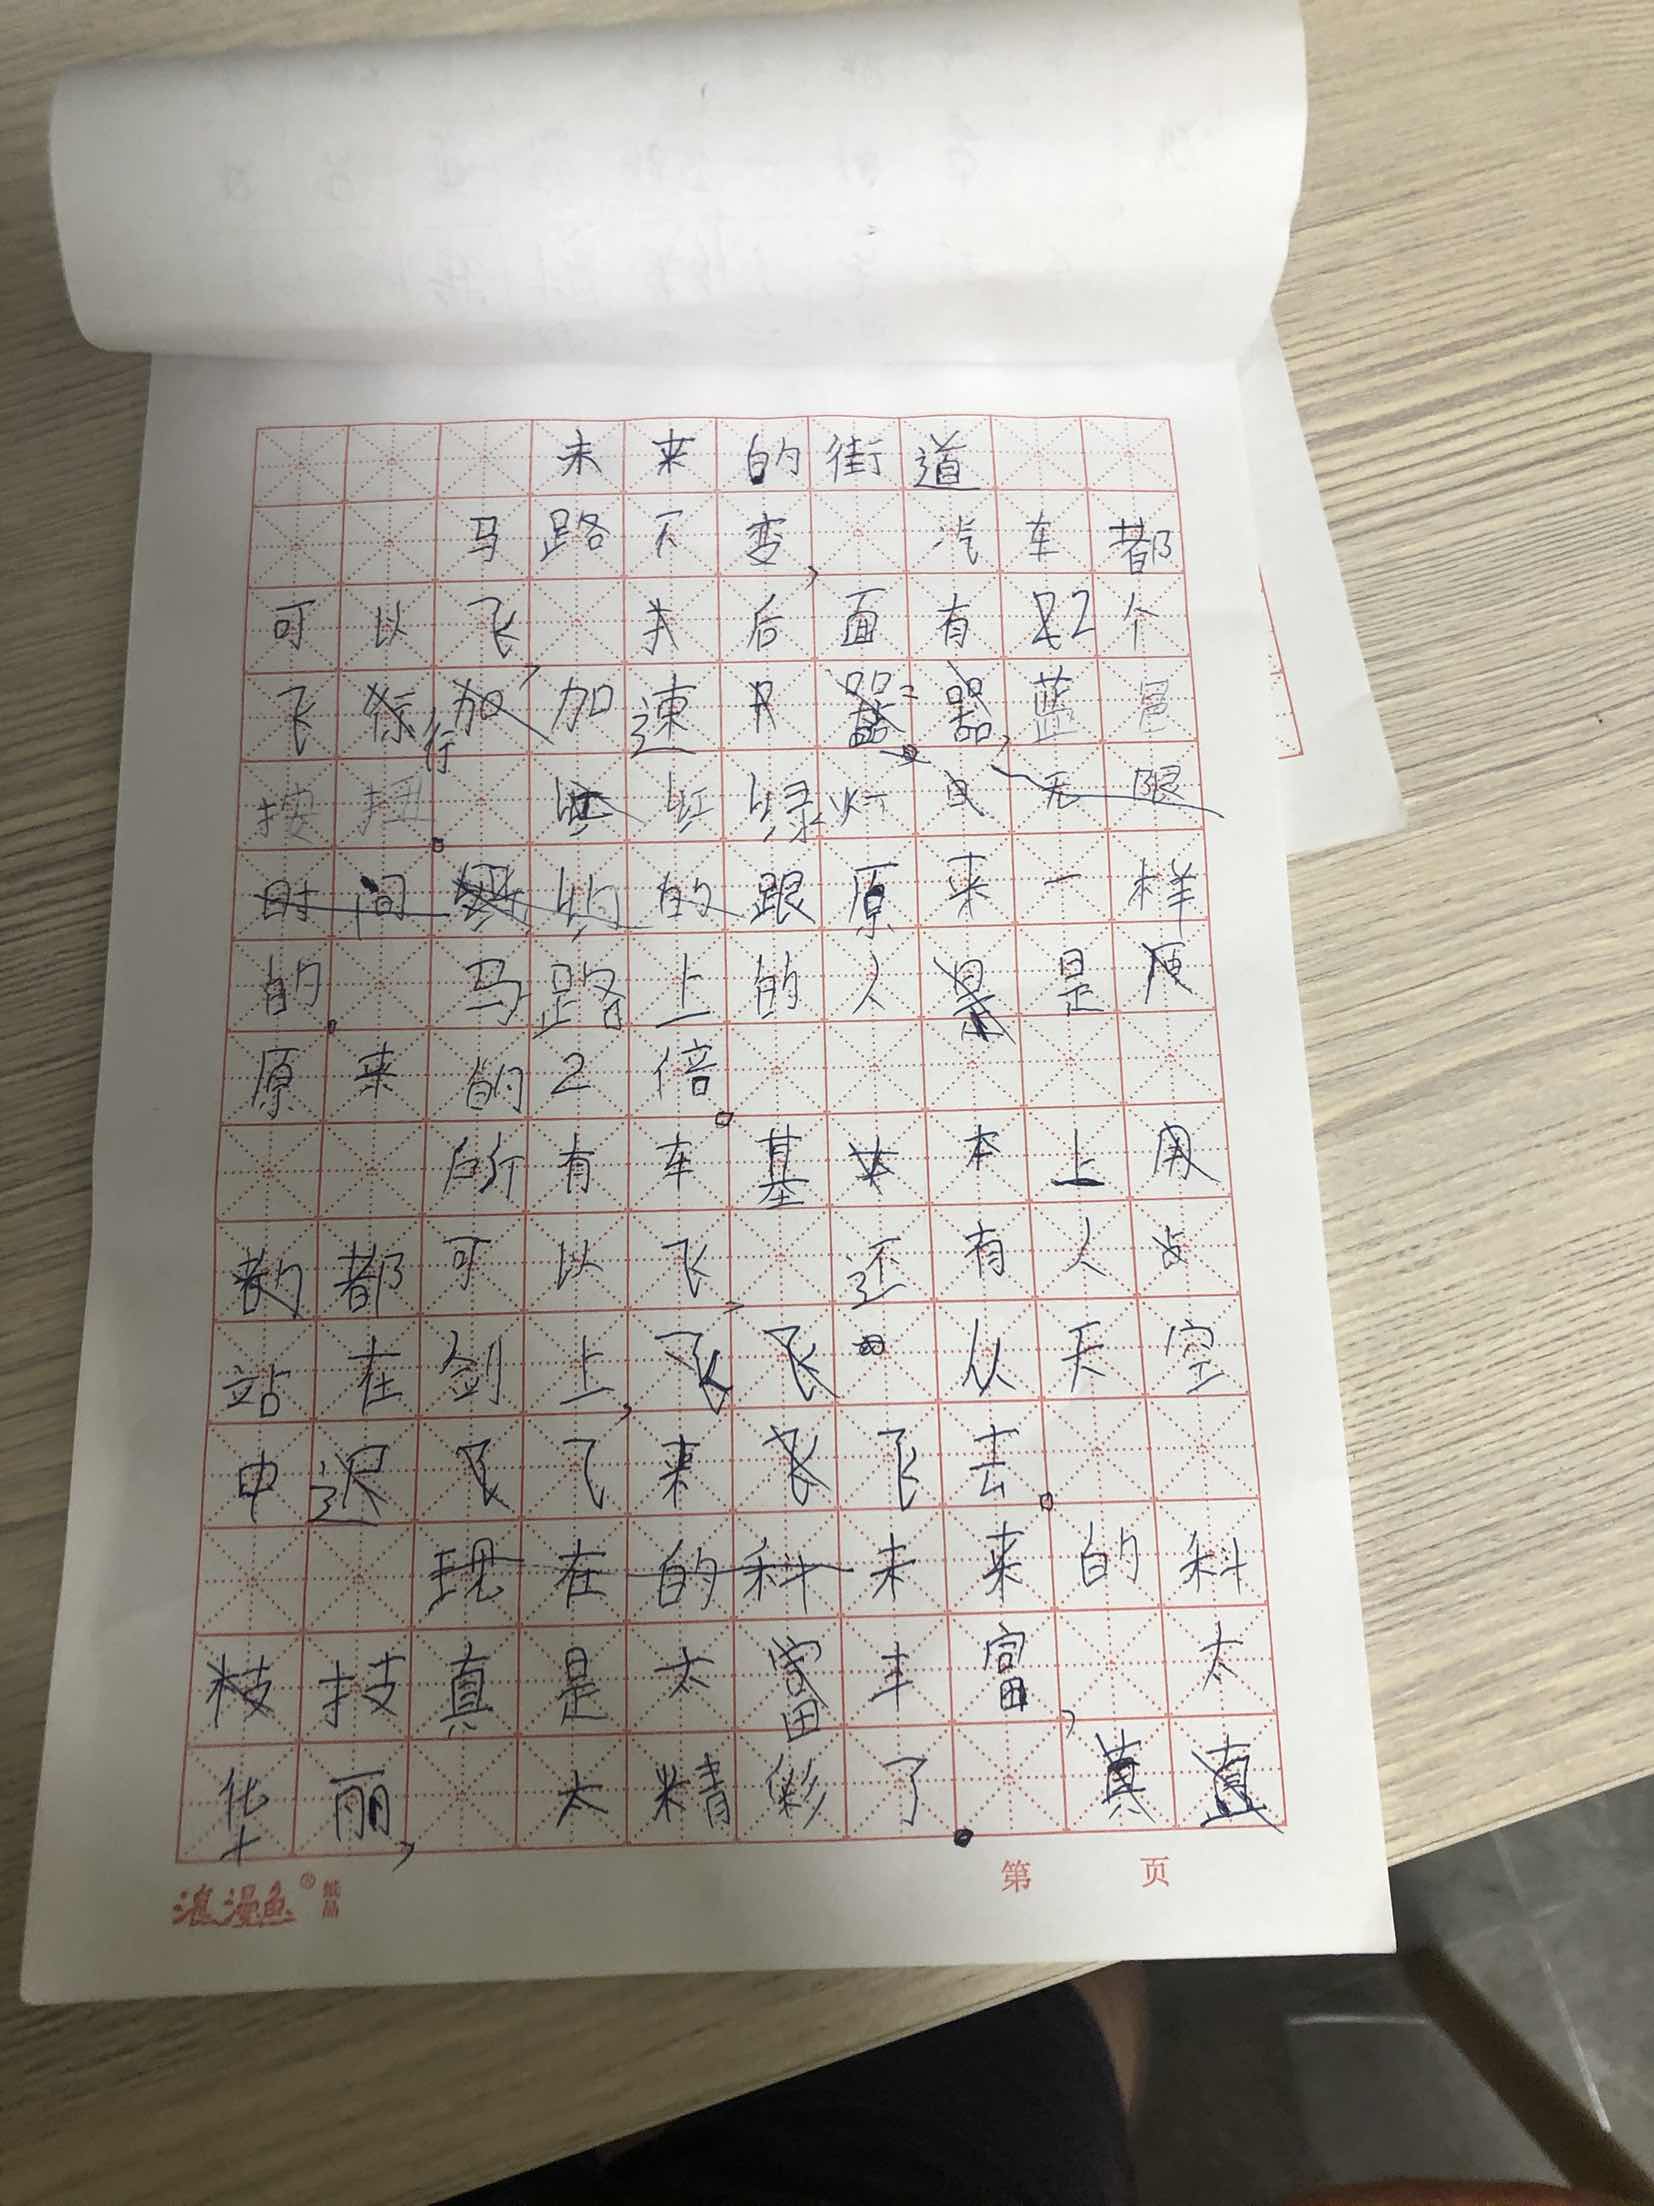 未来的街道
马路不变,汽车都
可以飞,后面有2个
飞行加速器,蓝色
按扭。红绿灯
跟原来一样
的。马路上的人是
原来的2倍。
所有车基本上
都可以飞,还有人
站在剑上,飞从天空
中飞来飞去。
未来的科
技真是太丰富,太
华丽,太精彩了。
浪漫鱼®纸品
第 页